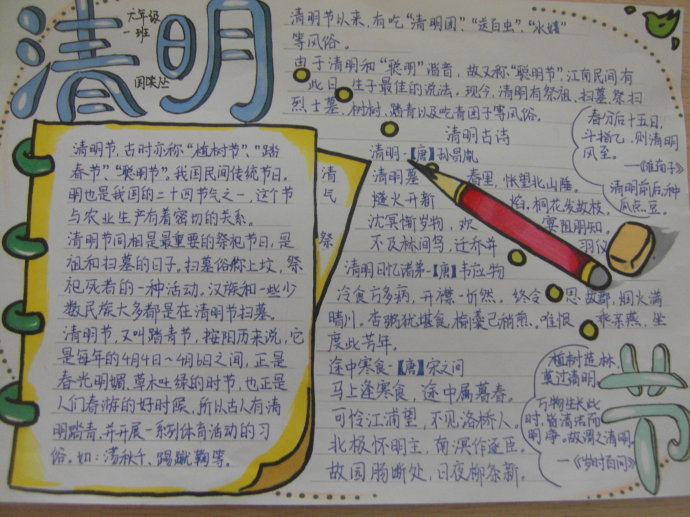 清明
六年级
一班
清明节以来,有吃“清明团”、“送百虫”、
等风俗。
由于清明和“聪明”谐音,故又称“聪明节”,江南民间有
此日 生子最佳的说法。现今,清明有祭祖、扫墓、祭扫
烈士墓、树树、踏青以及吃青团子等风俗。
清明古诗
春分后十五日,
斗指乙,则清明
风至。
清明前后,种
瓜点豆。
清明节,古时亦称“植树节”、“踏
春节”、“聪明节”。我国民间传统节日。
明也是我国的二十四节气之一,这个节
与农业生产有着密切的关系。
清明节同相是最重要的祭祀节日,是
祖和扫墓的日子。扫墓俗称上坟,祭
祀死者的一种活动。汉族和一些少
数民族大多都是在清明节扫墓。
清明节,又叫踏青节,按阳历来说,它
是每年的4月4日~4月6日之间,正是
春光明媚,草木吐绿的时节,也正是
人们春游的好时候,所以古人有清
明踏青,并开展一系列体育活动的习
俗。如:荡秋千、踢蹴鞠等。
清
民
祭
清明-【唐】孙昌胤
清明暮 春里,怅望北山陲。
燧火开新 焰,桐花发故枝。
沈冥惭岁物,欢 宴阻朋知。
不及林间鸟,迁乔并 羽仪
清明日忆诸弟-【唐】韦应物
冷食方多病,开襟一忻然。终令 思故郡,烟火满
晴川。杏粥犹堪食,榆羹已稍煎。唯恨 乖亲燕,坐
度此芳年。
途中寒食-【唐】宋之问
马上逢寒食,途中属暮春。
可怜江浦望,不见洛桥人。
北极怀明主,南溟作逐臣。
故园肠断处,日夜柳条新。
植树造林,
莫过清明。
万物生长此
时,皆清洁而
明净。故谓之清明。
—《岁时百问》
节